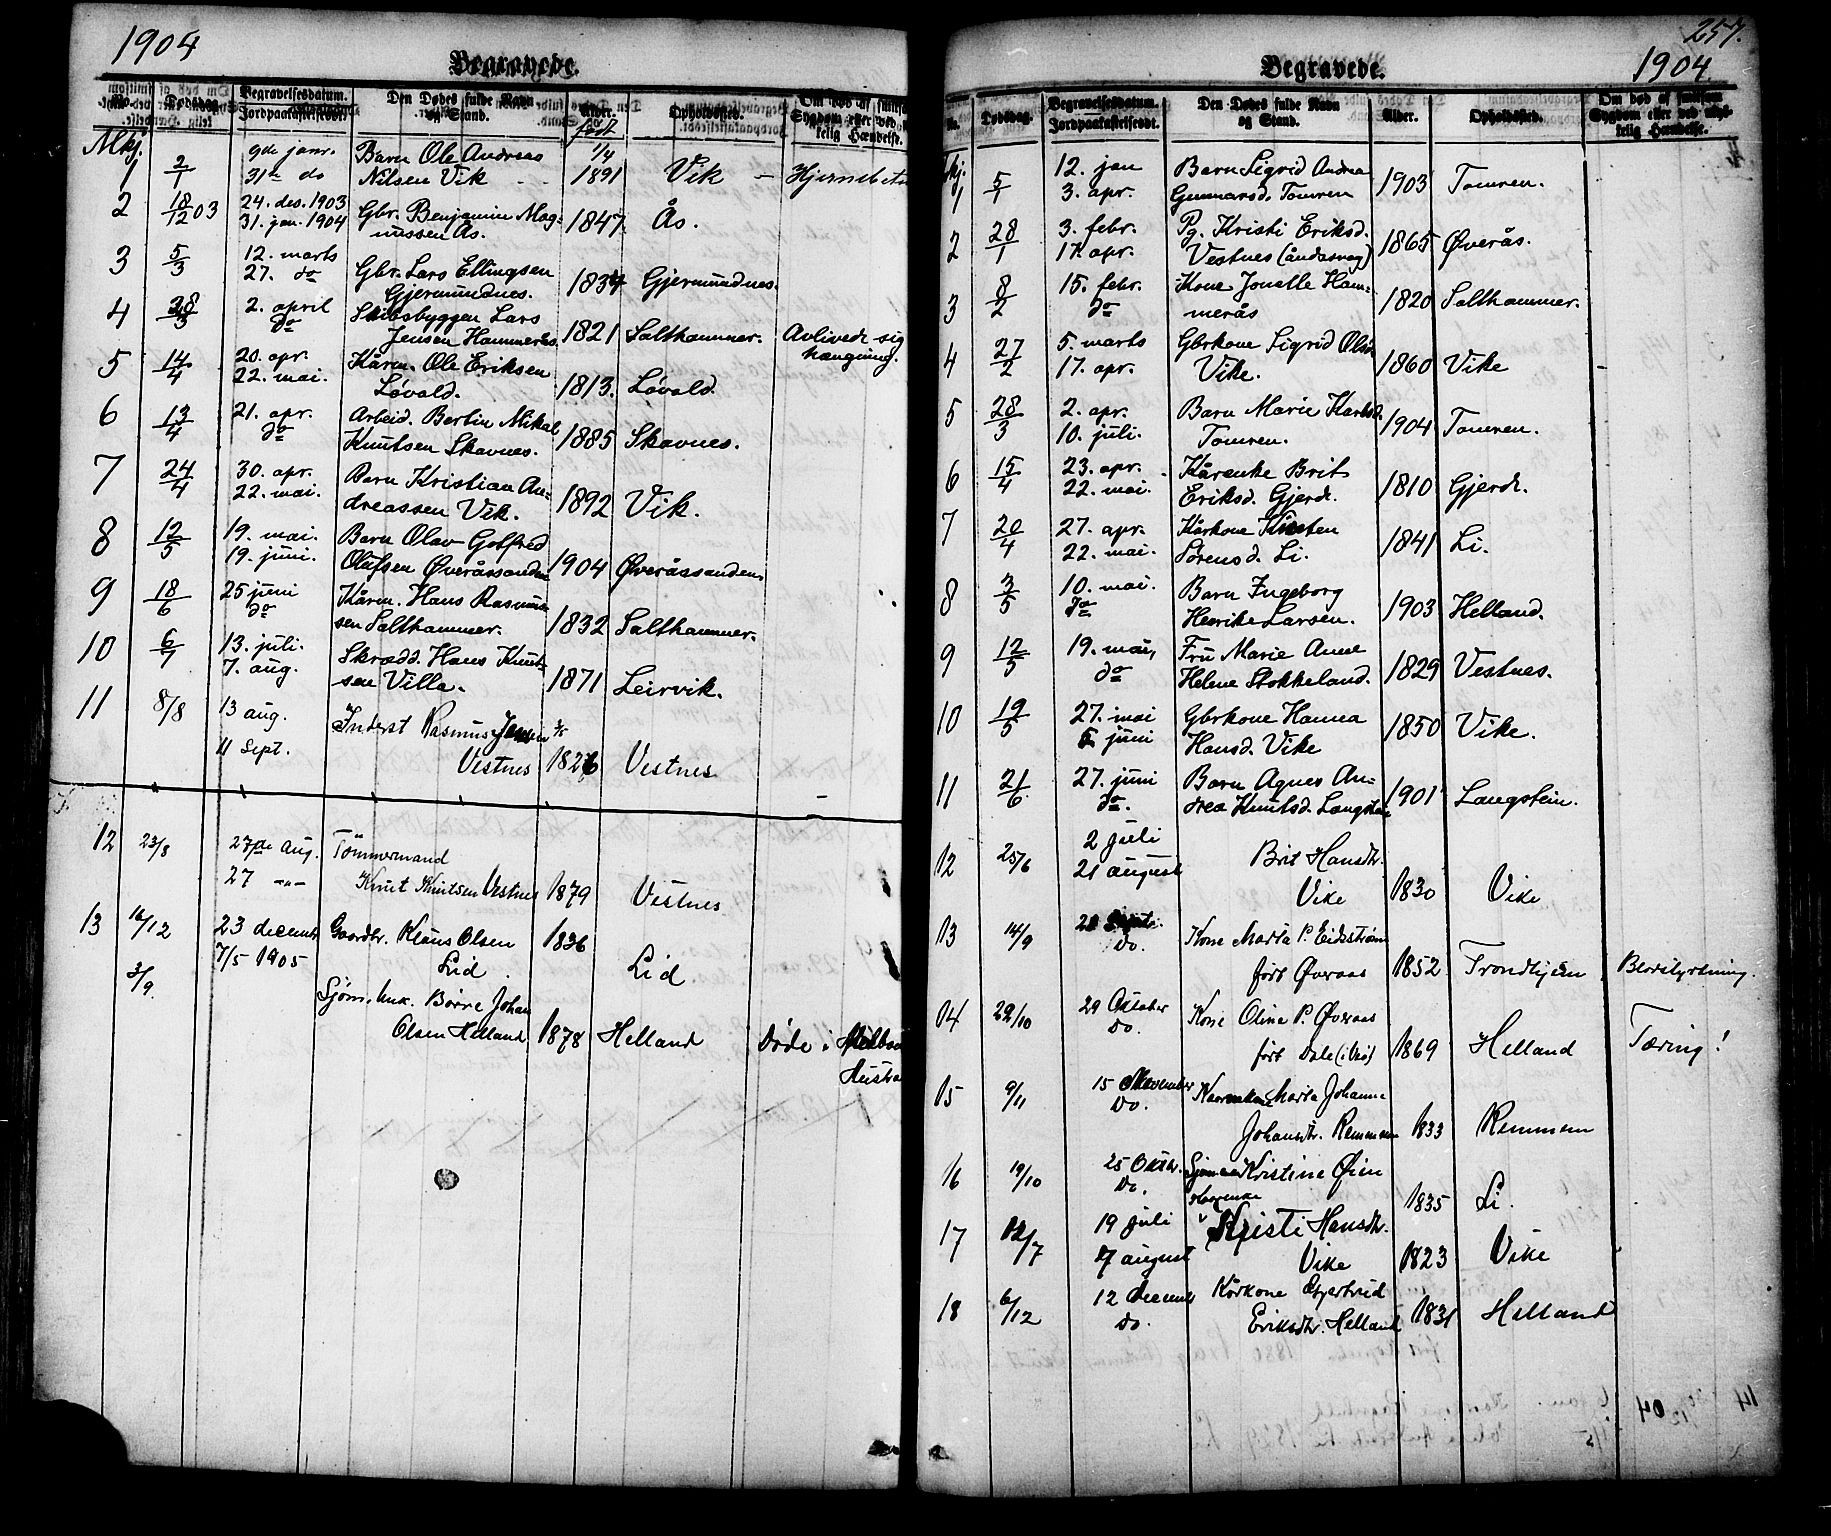 1904
Begravede.
No.
Dødsdag.
Begravelsesdatum.
Jordpaakastelsesdt.
Den Dødes fulde Navn
og Stand.
Alder.
født
Opholdssted.
Om død af smitsom
Sygdom eller ved ulyk-
kelig Hændelse.
Mkj.
1 2/1 9de janr. Barn Ole Andreas 1/4
31te do Nilsen Vik 1891 Vik
2 18/12 03 24. des. 1903 Gbr. Benjamin Mag-
31. jan. 1904 nussen Ås. 1847. Ås.
3 5/3 12. marts Gbr. Lars Ellingsen
27. do Gjermundnes. 1834 Gjermundnes.
4 28/3 2. april Skibsbyggen Lars
do Jensen Hammerås. 1821 Salthammer. Avlivede sig
hængning.
5 14/4 20. apr. Kårm. Ole Eriksen
22. mai. Løvold. 1813. Løvold.
6 13/4 21. apr. Arbeid. Bertin Mikal
do Knutsen Skavnes. 1885 Skavnes.
7 24/4 30. apr. Barn Kristian An-
22. mai. dreassen Vik. 1892 Vik.
8 12/5 19. mai. Barn Olav Gotfred
19. juni. Olufsen Øveråssanden 1904 Øveråssanden
9 18/6 25 juni Kårm. Hans Rasmus-
do sen Salthammer. 1832 Salthammer.
10 6/7 13. juli. Skrædd. Hans Knut-
7. aug. sen Villa. 1871 Leirvik.
11 8/8 13 aug. Inderst Rasmus Jensen
11 Sept. Vestnes 1826 Vestnes
12 23/8 27de Aug. Tömmermand
27 -"- Knut Knutsen Vestnes 1879 Vestnes
13 16/12 23 decembr Gaardbr. Klaus Olsen 1836
7/5 1905 Lid Lid
3/9. Sjøm. Unk. Börre Johan
Olsen Helland 1878 Helland Døde i
257.
Begravede.
1904
No.
Dødsdag.
Begravelsesdatum.
Jordpaakastelsesdt.
Den Dødes fulde Navn
og Stand.
Alder.
Opholdssted.
Om død af smitsom
Sygdom eller ved ulyk-
kelig Hændelse.
1 5/1 12. jan Barn Sigrid Andrea
3. apr. Gunnarsd. Tomren 1903 Tomren.
2 28/1 3. febr. Pg. Kristi Eriksd.
17. apr. Vestnes (åndssvag) 1865 Øverås.
3 8/2 15. febr. Kone Jonette Ham-
do merås 1820 Salthammer.
4 27/2 5. marts Gbrkone Sigrid Olsd.
17. apr. Vike. 1860 Vike
5 28/3 2. apr. Barn Marie Karlsd.
10. juli. Tomren. 1904 Tomren.
6 15/4 23. apr. Kårenke Brit
22. mai. Eriksd. Gjerde. 1810 Gjerde.
7 20/4 27. apr. Kårkone Kirsten
22. mai. Sørensd. Li. 1841 Li.
8 3/5 10. mai. Barn Ingeborg
do Henrike Larsen. 1903 Helland.
9 12/5 19. mai, Fru Marie Anne
do Helene Stokkeland. 1829 Vestnes.
10 19/5 27. mai Gbrkone Hanna
5 juni Hansd. Vike 1850 Vike.
11 21/6 27. juni Barn Agnes An-
do. drea Knutsd. Langstein 1901 Langstein.
12 25/6 2 juli Brit Hansdtr.
21 august Vike 1830 Vike
13 14/9 20 Kone Marta P. Eidsstrøm
Do. født Øveraas 1852 Trondhjem Blodstyrtning.
14 22/10 29 Oktober Kone Olina P. Øveraas
Do. født Dale 1869 Helland Tæring!
15 9/11 15 November Kaarenkone Marta Johanna
Do. Johansdtr. Remmem 1833 Remmem
16 19/10 25 Oktbr. Kristine Øien
Do. Kaarenke 1835 Li.
17 12/7 19 juli Kristi Hansdtr.
7 august Vike 1823 Vike
18 6/12 12 decembr Kårkone Gjertrud
Do. Eriksdtr. Helland 1831 Helland